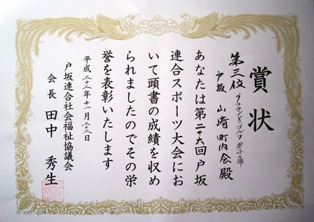 賞状
第三位 グラウンドゴルフ
戸坂 山崎町内会殿
あなたは第二十六回戸坂
連合スポーツ大会にお
いて頭書の成績を収め
られましたのでその栄
誉を表彰いたします
平成二三年十一月二三日
戸坂連合社会福祉協議会
会長 田中 秀生